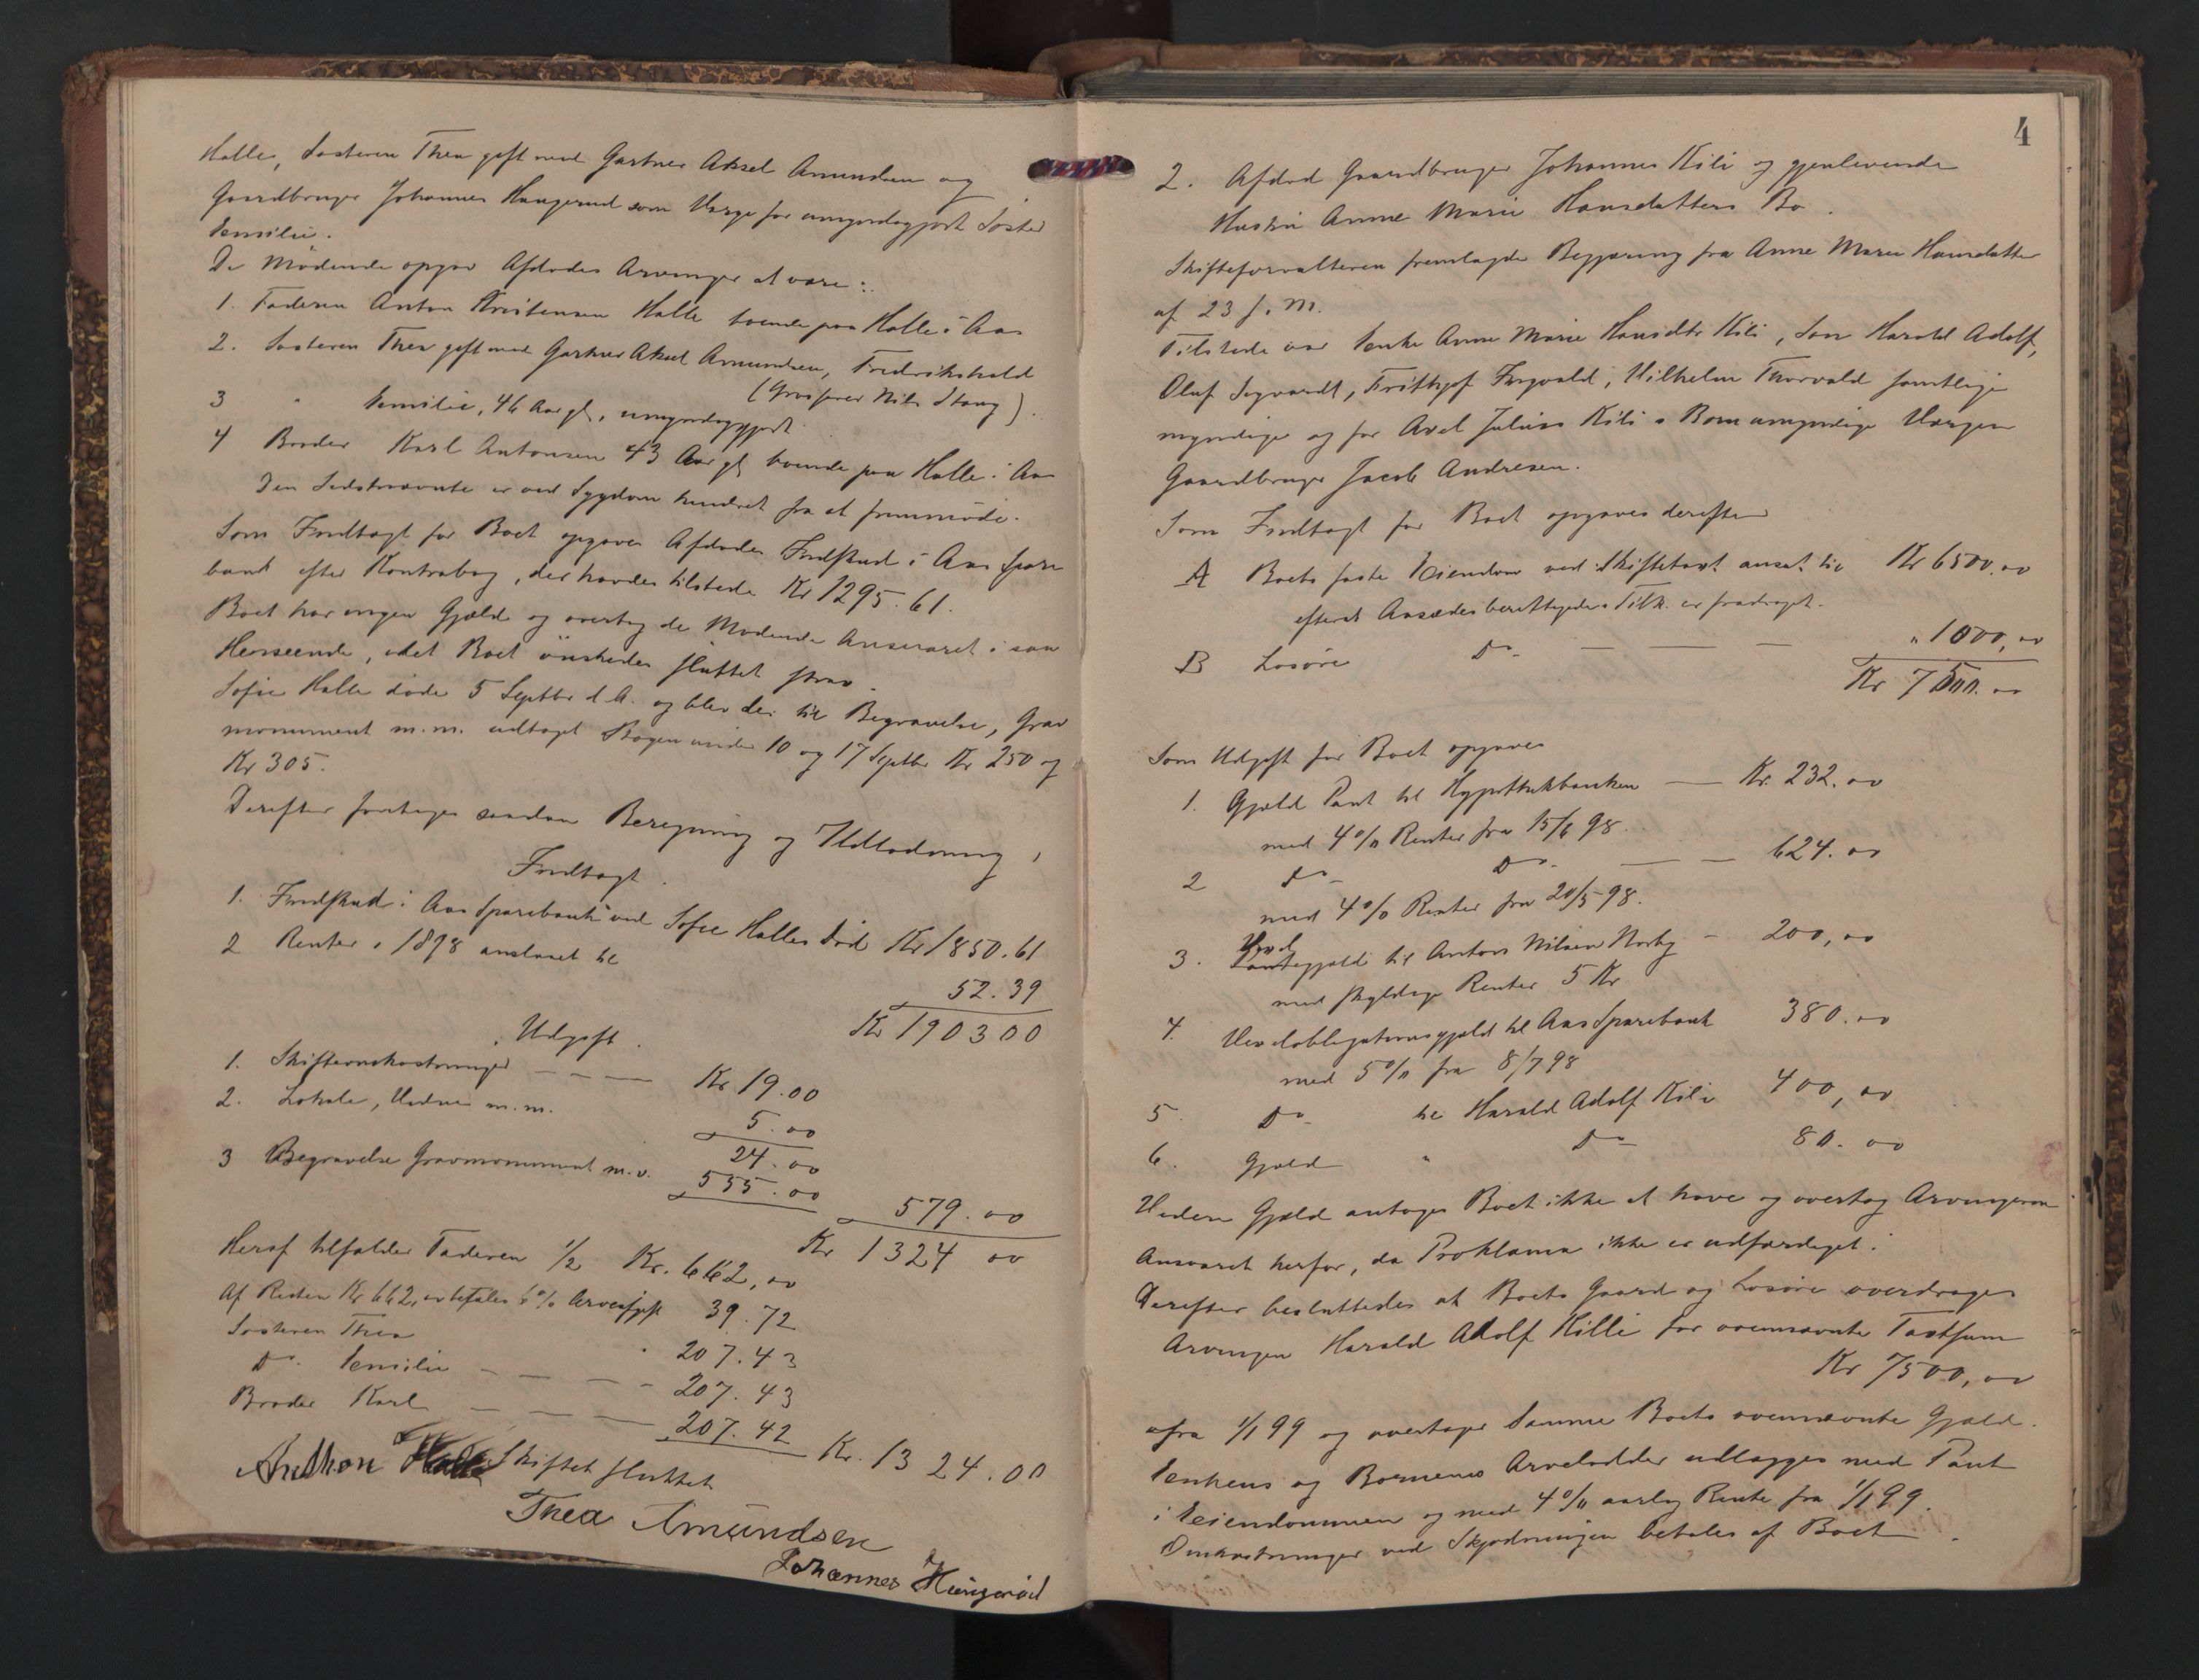 Halle, Søsteren Thea gift med Gartner Aksel Amundsen og
Gaardbruger Johannes Haugerud som Værge for umyndiggjort Søster
De Mødende opgav Afdødes Arvinger at være:
1. Faderen Anton Kristensen Halle boende paa Halle i Aas
2. Søsteren Thea gift med Gartner Aksel Amundsen, Fredrikshald
(Grosserer Nils Stang).
3 " 46 Aar gl, umyndiggjort.
4 Broder Karl Antonsen 43 Aar gl boende paa Halle i Aas
Den Sidstnævnte er ved Sygdom hindret fra at fremmøde.
Som Indtægt for Boet opgaves Afdødes Indskud i Aas Spare
bank efter Kontrabog, der havdes tilstede Kr 1295.61.
Boet har ingen Gjæld og overtog de Mødende Ansvaret i saa
Henseende, idet Boet ønskedes sluttet strax.
Sofie Halle døde 5 Septbr d.A. og blev der til Begravelse, Grav
monument m.m. udtaget Bogen under 10 og 17 Septbr Kr 250 og
Kr 305.
Derefter foretoges saadan Beregning og Udlodning,
Indtægt.
1. Indskud i Aas Sparebank ved Sofie Halles Død Kr 1850.61
2 Renter i 1898 anslaaet til
52.39
Kr 190300
Udgift.
1. Skifteomkostninger — — — Kr 19.00
2. Lokale, Vidner m.m.
5.00
24.00
3 Begravelse Gravmonument m.v. 555.00
579.00
Kr 1324 00
Heraf tilfalder Faderen 1/2 Kr. 662,00
Af Resten Kr 662,00 betales 6% Arveafgift 39.72
Søsteren Thea " 207.43
Do. — — — 207.43
Broder Karl — — — 207.42 Kr. 1324.00
Skiftet sluttet
Anthon Halle
Thea Amundsen
Johannes Haugerud
4
2. Afdød Gaardbruger Johannes Kili og gjenlevende
Hustru Anne Marie Hansdatters Bo.
Skifteforvalteren fremlagde Begjæring fra Anne Marie Hansdatter
af 23 f.M.
Tilstede var Enke Anne Marie Hansdtr Kili, Søn Harald Adolf,
Oluf Sigvardt, Frithjof Ingvald, Vilhelm Thorvald samtlige
myndige og for Axel Julius Kili s Børn umyndige Værgen
Gaardbruger Jacob Andresen.
Som Indtægt for Boet opgaves derefter
A Boets faste Eiendom ved Skiftetaxt ansat til Kr 6500.00
efterat Aasædesberettigedes Tilk. er fradraget.
B Løsøre Do. — — — " 1000,00
Kr 7500.00
Som Udgift for Boet opgaves
1. Gjæld Pant til Hypothekbanken — Kr. 232.00
med 4% Renter fra 15/6 98.
2 Do Do. — — 624.00
med 4% Renter fra 20/5-98.
3. Vexelgjæld til Anton Nilsen Norby — 200,00
med skyldige Renter 5 Kr
4. Vexelobligationsgjæld til Aas Sparebank 380.00
med 5% fra 8/7 98
5 Do til Harald Adolf Kili 400,00
6. Gjæld " Do — 80.00
Videre Gjæld antoges Boet ikke at have og overtog Arvingerne
Ansvaret herfor, da Proklama ikke er udfærdiget.
Derefter besluttedes at Boets Gaard og Løsøre overdrages
Arvingen Harald Adolf Killi for ovennævnte Taxtsum
Kr 7500,00
fra 1/1 99 og overtager Samme Boets ovennævnte Gjæld.
Enkens og Børnenes Arvelodder udlægges med Pant
i Eiendommen og med 4% aarlig Rente fra 1/1 99.
Omkostninger ved Skjødningen betales af Boet